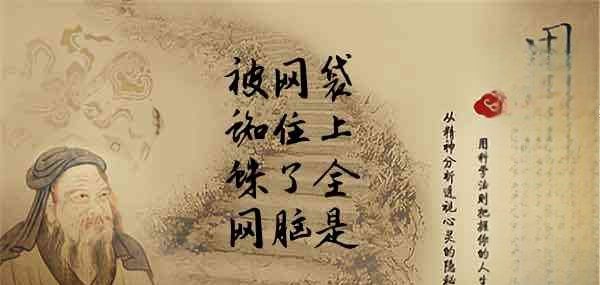 被蜘蛛网
网住了脑
袋上全是
用科学法则把握你的人生
从精神分析透视心灵的隐秘